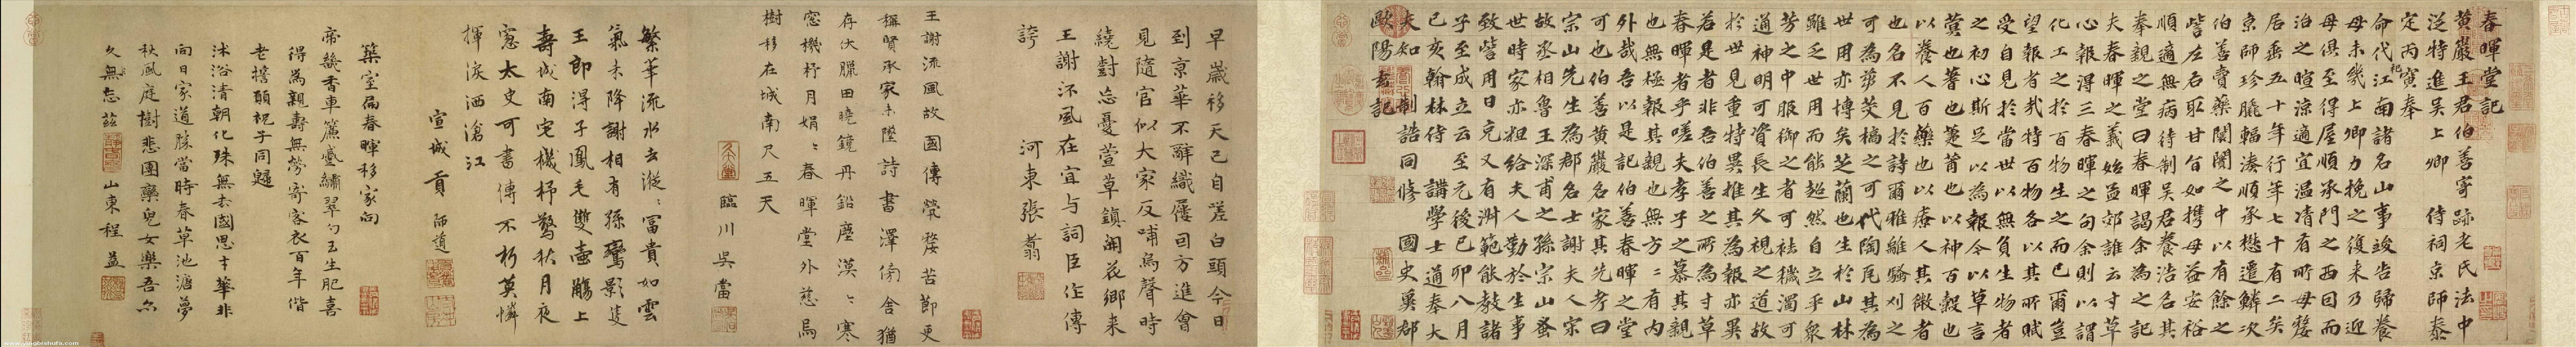 春暉堂記
黃巖王君伯善寄跡老氏法中
泛特進吳上卿 侍祠京師泰
定丙寅奉
命代江南諸名山事竣告歸養
母未幾上卿力挽之復來乃迎
母俱至得屋順承門之西因而
泊之暄涼適宜温凊有所母嫠
居垂五十年行年七十有二矣
京師珍脆輻湊順承懋遷鱗次
伯善賣藥闤闠之中以有餘之
訾左右取甘旨如攜母益安裕
順適無病待制吳君養浩名其
奉親之堂曰春暉謁余為之記
夫春暉之義始孟郊誰云寸草
心報得三春暉之句余則以謂
化工之於百物生之而已爾豈
望報者哉特百物各以其所賦
受自見於當世以無負生物者
之初心斯足以為報令以草言
蓂也蓍也蓂莆也以神百穀也
以養人百藥也以療人其微者
也名不見於詩爾雅離騷刈之
可為蒭茭槁之可代陶瓦其為
世用亦博矣芝蘭也生於山林
雖乏世用而能超然自立乎衆
芳之中服御之者可祛穢濁可
通神明可資長生久視之道故
於世見重特異推其為報亦異
若是者非吾伯善之所為寸草
春暉者乎嗟夫孝子之慕其親
也無極報其親也無方〻有內
外哉吾以是記伯善春暉之堂
可也伯善黃巖名家其先考曰
宗山先生為郡名士謝夫人宗
故丞相魯王深甫之孫宗山蚤
世時家亦粗給夫人勤於生事
致訾用日充又有淑範能教諸
子至成立云至元後己卯八月
己亥翰林侍講學士通奉大
夫知 制誥同修 國史冀郡
歐陽玄記
早歲移天已自嗟白頭今日
到京華不辭織屨囘方進會
見隨官似大家反哺烏聲時
繞對忘憂萱草鎮開花鄉来
王謝沠風在宜与詞臣作傳
誇 河東張翥
王謝流風故國傳煢嫠苦節更
稱賢承家未墜詩書澤傍舍猶
存伏臘田曉鏡丹鉛塵漠〻寒
窓機杼月娟〻春暉堂外慈烏
樹移在城南尺五天
臨川吳當
繁華流水去漇〻冨貴如雲
氣未降謝相有孫鸞影隻
王郎得子鳳毛雙壺觴上
壽城南宅機杼驚秋月夜
窓太史可書傳不朽莫憐
揮淚洒滄江
宣城貢師道
築室扁春暉移家向
帝畿香車簾幙繡翠勺玉生肥喜
得為親壽無勞寄客衣百年偕
老擔願祝子同歸
沐浴清朝化殊無去國思才華非
向日家道勝當時春草池瀆夢
秋風庭樹悲團欒兒女樂吾尒
久無忘茲
山東程益